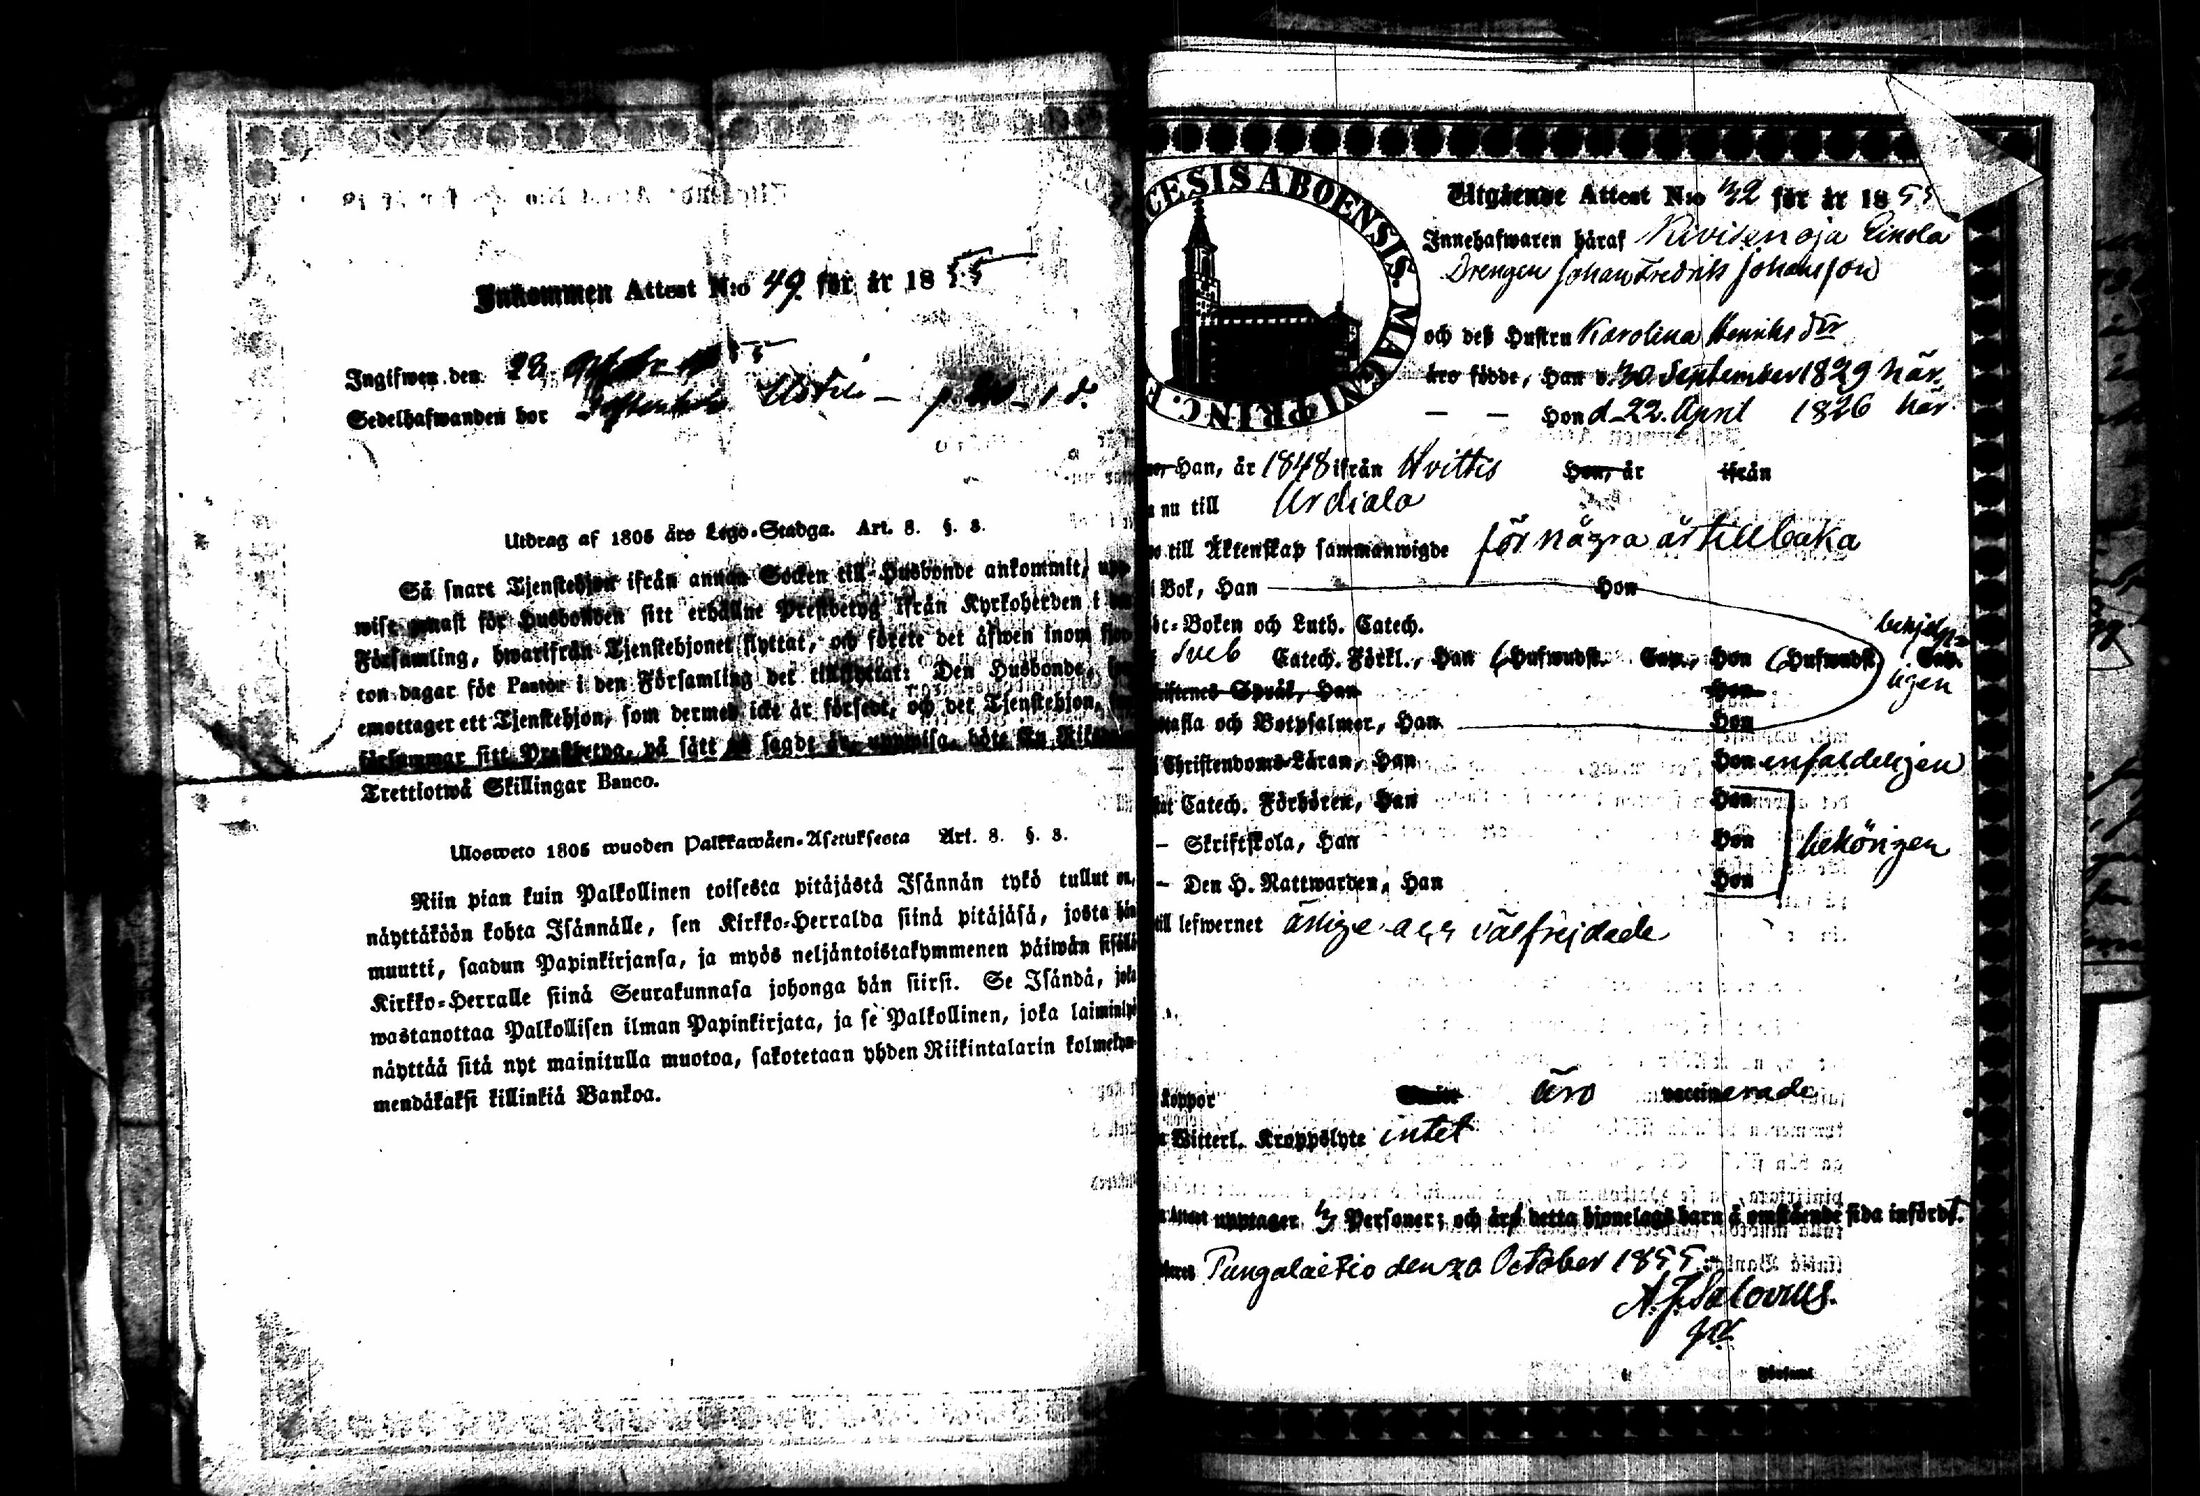 Inkommen Attest N:o 49 för år 1855
Ingifwen den 28
Sedelhafwanden bor
Utdrag af 1805 års Lego-Stadga. Art. 8. §. 8.
Så snart Tjenstehjon ifrån annan Socken till Husbonde ankommit, upp
wise genast för Husbonden sitt erhållne Prestbetyg ifrån Kyrkoherden i
Församling, hwarifrån Tjenstehjonet flyttat, och förete det äfwen inom fjor
ton dagar för Pastor i den Församling det tillflyttat: Den Husbonde,
emottager ett Tjenstehjon, som dermed icke är försedt, och det Tjenstehjon,
försummar sitt Prestbetyg, på sätt nu sagdt är, uppwisa, böte En Riksd
Trettiotwå Skillingar Banco.
Uloswето 1805 wuoden Palkkawäen-Asetuksesta Art. 8. §. 8.
Niin pian kuin Palkollinen toisesta pitäjästä Isännän tykö tullut on,
näyttäköön kohta Isännälle, sen Kirkko-Herralda siinä pitäjäsä, josta hän
muutti, saadun Papinkirjansa, ja myös neljäntoistakymmenen päiwän sisällä
Kirkko-Herralle siinä Seurakunnasa johonga hän siirsi. Se Isändä, joka
wastanottaa Palkollisen ilman Papinkirjata, ja se Palkollinen, joka laiminlyö
näyttää sitä nyt mainitulla muotoa, sakotetaan yhden Riikintalarin kolmekym-
mendäkaksi killinkiä Bankoa.
CESIS ABOENSIS. MAGNI PRINC. F
Utgående Attest N:o 32 för år 1855
Innehafwaren häraf Kivisenoja Einola
Drengen Johan Fredrik Johansson
och deß Hustru Karolina Henriks dtr
äro födde, Han d. 30 September 1829 här
— — Hon d. 22. April 1826 här
Han, år 1848 ifrån Hvittis Hon, år ifrån
nu till Urdiala
till Äktenskap sammanwigde för några år tillbaka
i Bok, Han Hon
bc-Boken och Luth. Catech.
Sveb Catech. Förkl., Han (Hufwudst. Cap., Hon (Hufwudst) Cap. behjelpligen
Språk, Han Hon
tafla och Botpsalmer, Han Hon
Christendoms-Läran, Han Hon enfaldeligen
Catech. Förhören, Han Hon
— Skriftskola, Han Hon behörigen
— Den H. Nattwarden, Han Hon
till lefwernet ärlige och välfrejdade
koppor äro vaccinerade
Witterl. Kroppslyte intet
upptager 3 Personer; och äro detta hjonelags barn å omstående sida införd
Pungalaitio den 20 October 1855
A. F. Salovius.